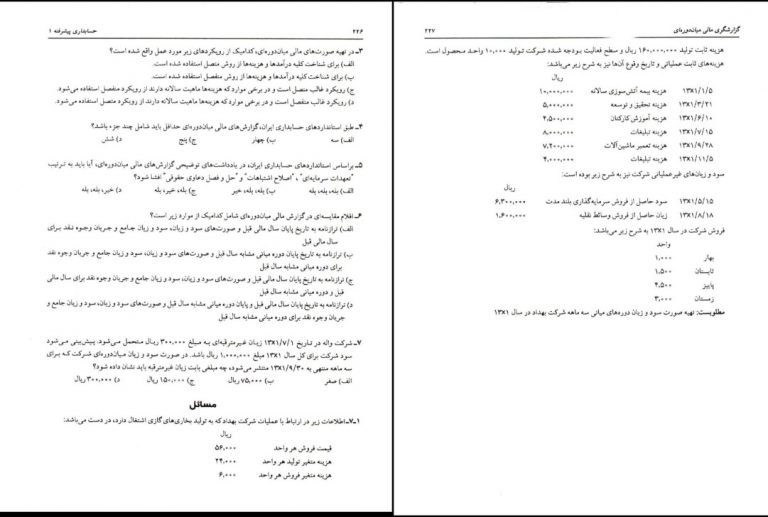 ۲۲۶ حسابداری پیشرفته ۱
۳ـ در تهیه صورت‌های مالی میان‌دوره‌ای، کدامیک از رویکردهای زیر مورد عمل واقع شده است؟
الف) برای شناخت کلیه درآمدها و هزینه‌ها از روش متصل استفاده شده است.
ب) برای شناخت کلیه درآمدها و هزینه‌ها از روش منفصل استفاده شده است.
ج) رویکرد غالب متصل است و در برخی موارد که هزینه‌ها ماهیت سالانه دارند از رویکرد منفصل استفاده می‌شود.
د) رویکرد غالب منفصل است و در برخی موارد که هزینه‌ها ماهیت سالانه دارند از رویکرد متصل استفاده می‌شود.
۴ـ طبق استانداردهای حسابداری ایران، گزارش‌های مالی میان‌دوره‌ای حداقل باید شامل چند جزء باشد؟
الف) سه ب) چهار ج) پنج د) شش
۵ـ براساس استانداردهای حسابداری ایران، در یادداشت‌های توضیحی گزارش‌های مالی میان‌دوره‌ای، آیا باید به ترتیب
"تعهدات سرمایه‌ای"، "اصلاح اشتباهات" و "حل و فصل دعاوی حقوقی" افشا شود؟
الف) بله، بله، بله ب) بله، بله، خیر ج) بله، خیر، بله د) خیر، بله، بله
۶ـ اقلام مقایسه‌ای در گزارش مالی میان‌دوره‌ای شامل کدامیک از موارد زیر است؟
الف) ترازنامه به تاریخ پایان سال مالی قبل و صورت‌های سود و زیان، سود و زیان جامع و جریان وجوه نقد برای
سال مالی قبل
ب) ترازنامه به تاریخ پایان دوره میانی مشابه سال قبل و صورت‌های سود و زیان، سود و زیان جامع و جریان وجوه نقد
برای دوره میانی مشابه سال قبل
ج) ترازنامه به تاریخ پایان سال مالی قبل و صورت‌های سود و زیان، سود و زیان جامع و جریان وجوه نقد برای سال مالی
قبل و دوره میانی مشابه سال قبل
د) ترازنامه به تاریخ پایان سال مالی قبل و پایان دوره میانی مشابه سال قبل و صورت‌های سود و زیان، سود و زیان جامع و
جریان وجوه نقد برای دوره میانی مشابه سال قبل
۷ـ شرکت واله در تاریخ ۱۳x۱/۷/۱ زیان غیرمترقبه‌ای به مبلغ ۳۰۰,۰۰۰ ریال متحمل می‌شود. پیش‌بینی می‌شود
سود شرکت برای کل سال ۱۳x۱ مبلغ ۱,۰۰۰,۰۰۰ ریال باشد. در صورت سود و زیان میان‌دوره‌ای شرکت که برای
سه ماهه منتهی به ۱۳x۱/۹/۳۰ منتشر می‌شود، چه مبلغی بابت زیان غیرمترقبه باید نشان داده شود؟
الف) صفر ب) ۷۵,۰۰۰ ریال ج) ۱۵۰,۰۰۰ ریال د) ۳۰۰,۰۰۰ ریال
مسائل
۱ـ۷ـ اطلاعات زیر در ارتباط با عملیات شرکت بهداد که به تولید بخاری‌های گازی اشتغال دارد، در دست می‌باشد:
ریال
قیمت فروش هر واحد ۵۶,۰۰۰
هزینه متغیر تولید هر واحد ۲۴,۰۰۰
هزینه متغیر فروش هر واحد ۶,۰۰۰
گزارشگری مالی میان‌دوره‌ای ۲۲۷
هزینه ثابت تولید ۱۶۰,۰۰۰,۰۰۰ ریال و سطح فعالیت بودجه شده شرکت تولید ۱۰,۰۰۰ واحد محصول است.
هزینه‌های ثابت عملیاتی و تاریخ وقوع آن‌ها نیز به شرح زیر می‌باشد:
ریال
۱۳x۱/۱/۵ هزینه بیمه آتش‌سوزی سالانه ۱۰,۰۰۰,۰۰۰
۱۳x۱/۳/۲۱ هزینه تحقیق و توسعه ۵,۰۰۰,۰۰۰
۱۳x۱/۶/۱۰ هزینه آموزش کارکنان ۴,۵۰۰,۰۰۰
۱۳x۱/۷/۱۵ هزینه تبلیغات ۸,۰۰۰,۰۰۰
۱۳x۱/۹/۲۸ هزینه تعمیر ماشین‌آلات ۷,۲۰۰,۰۰۰
۱۳x۱/۱۱/۵ هزینه تبلیغات ۴,۰۰۰,۰۰۰
سود و زیان‌های غیرعملیاتی شرکت نیز به شرح زیر بوده است:
ریال
۱۳x۱/۵/۱۵ سود حاصل از فروش سرمایه‌گذاری بلند مدت ۶,۳۰۰,۰۰۰
۱۳x۱/۸/۱۸ زیان حاصل از فروش وسائط نقلیه ۱,۶۰۰,۰۰۰
فروش شرکت در سال ۱۳x۱ به شرح زیر می‌باشد:
واحد
بهار ۱,۰۰۰
تابستان ۱,۵۰۰
پاییز ۴,۵۰۰
زمستان ۳,۰۰۰
مطلوبست: تهیه صورت سود و زیان دوره‌های میانی سه ماهه شرکت بهداد در سال ۱۳x۱